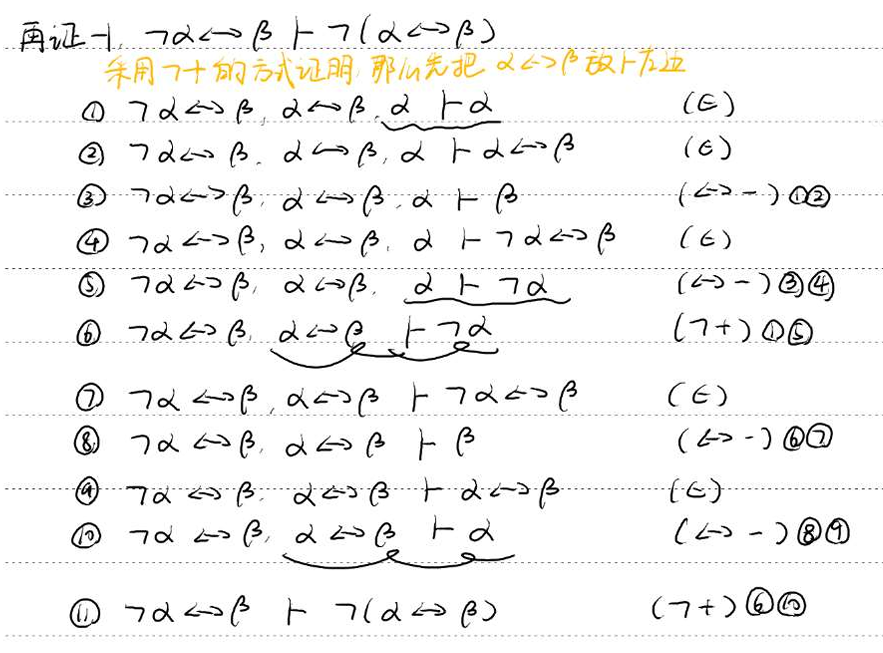 再证⊣. ¬α↔β ⊢ ¬(α↔β)
采用¬+的方式证明,那么先把 α↔β 放⊢左边
① ¬α↔β, α↔β, α ⊢ α (∈)
② ¬α↔β, α↔β, α ⊢ α↔β (∈)
③ ¬α↔β, α↔β, α ⊢ β (↔-)①②
④ ¬α↔β, α↔β, α ⊢ ¬α↔β (∈)
⑤ ¬α↔β, α↔β, α ⊢ ¬α (↔-)③④
⑥ ¬α↔β, α↔β ⊢ ¬α (¬+)①⑤
⑦ ¬α↔β, α↔β ⊢ ¬α↔β (∈)
⑧ ¬α↔β, α↔β ⊢ β (↔-)⑥⑦
⑨ ¬α↔β, α↔β ⊢ α↔β (∈)
⑩ ¬α↔β, α↔β ⊢ α (↔-)⑧⑨
⑪ ¬α↔β ⊢ ¬(α↔β) (¬+)⑥⑩